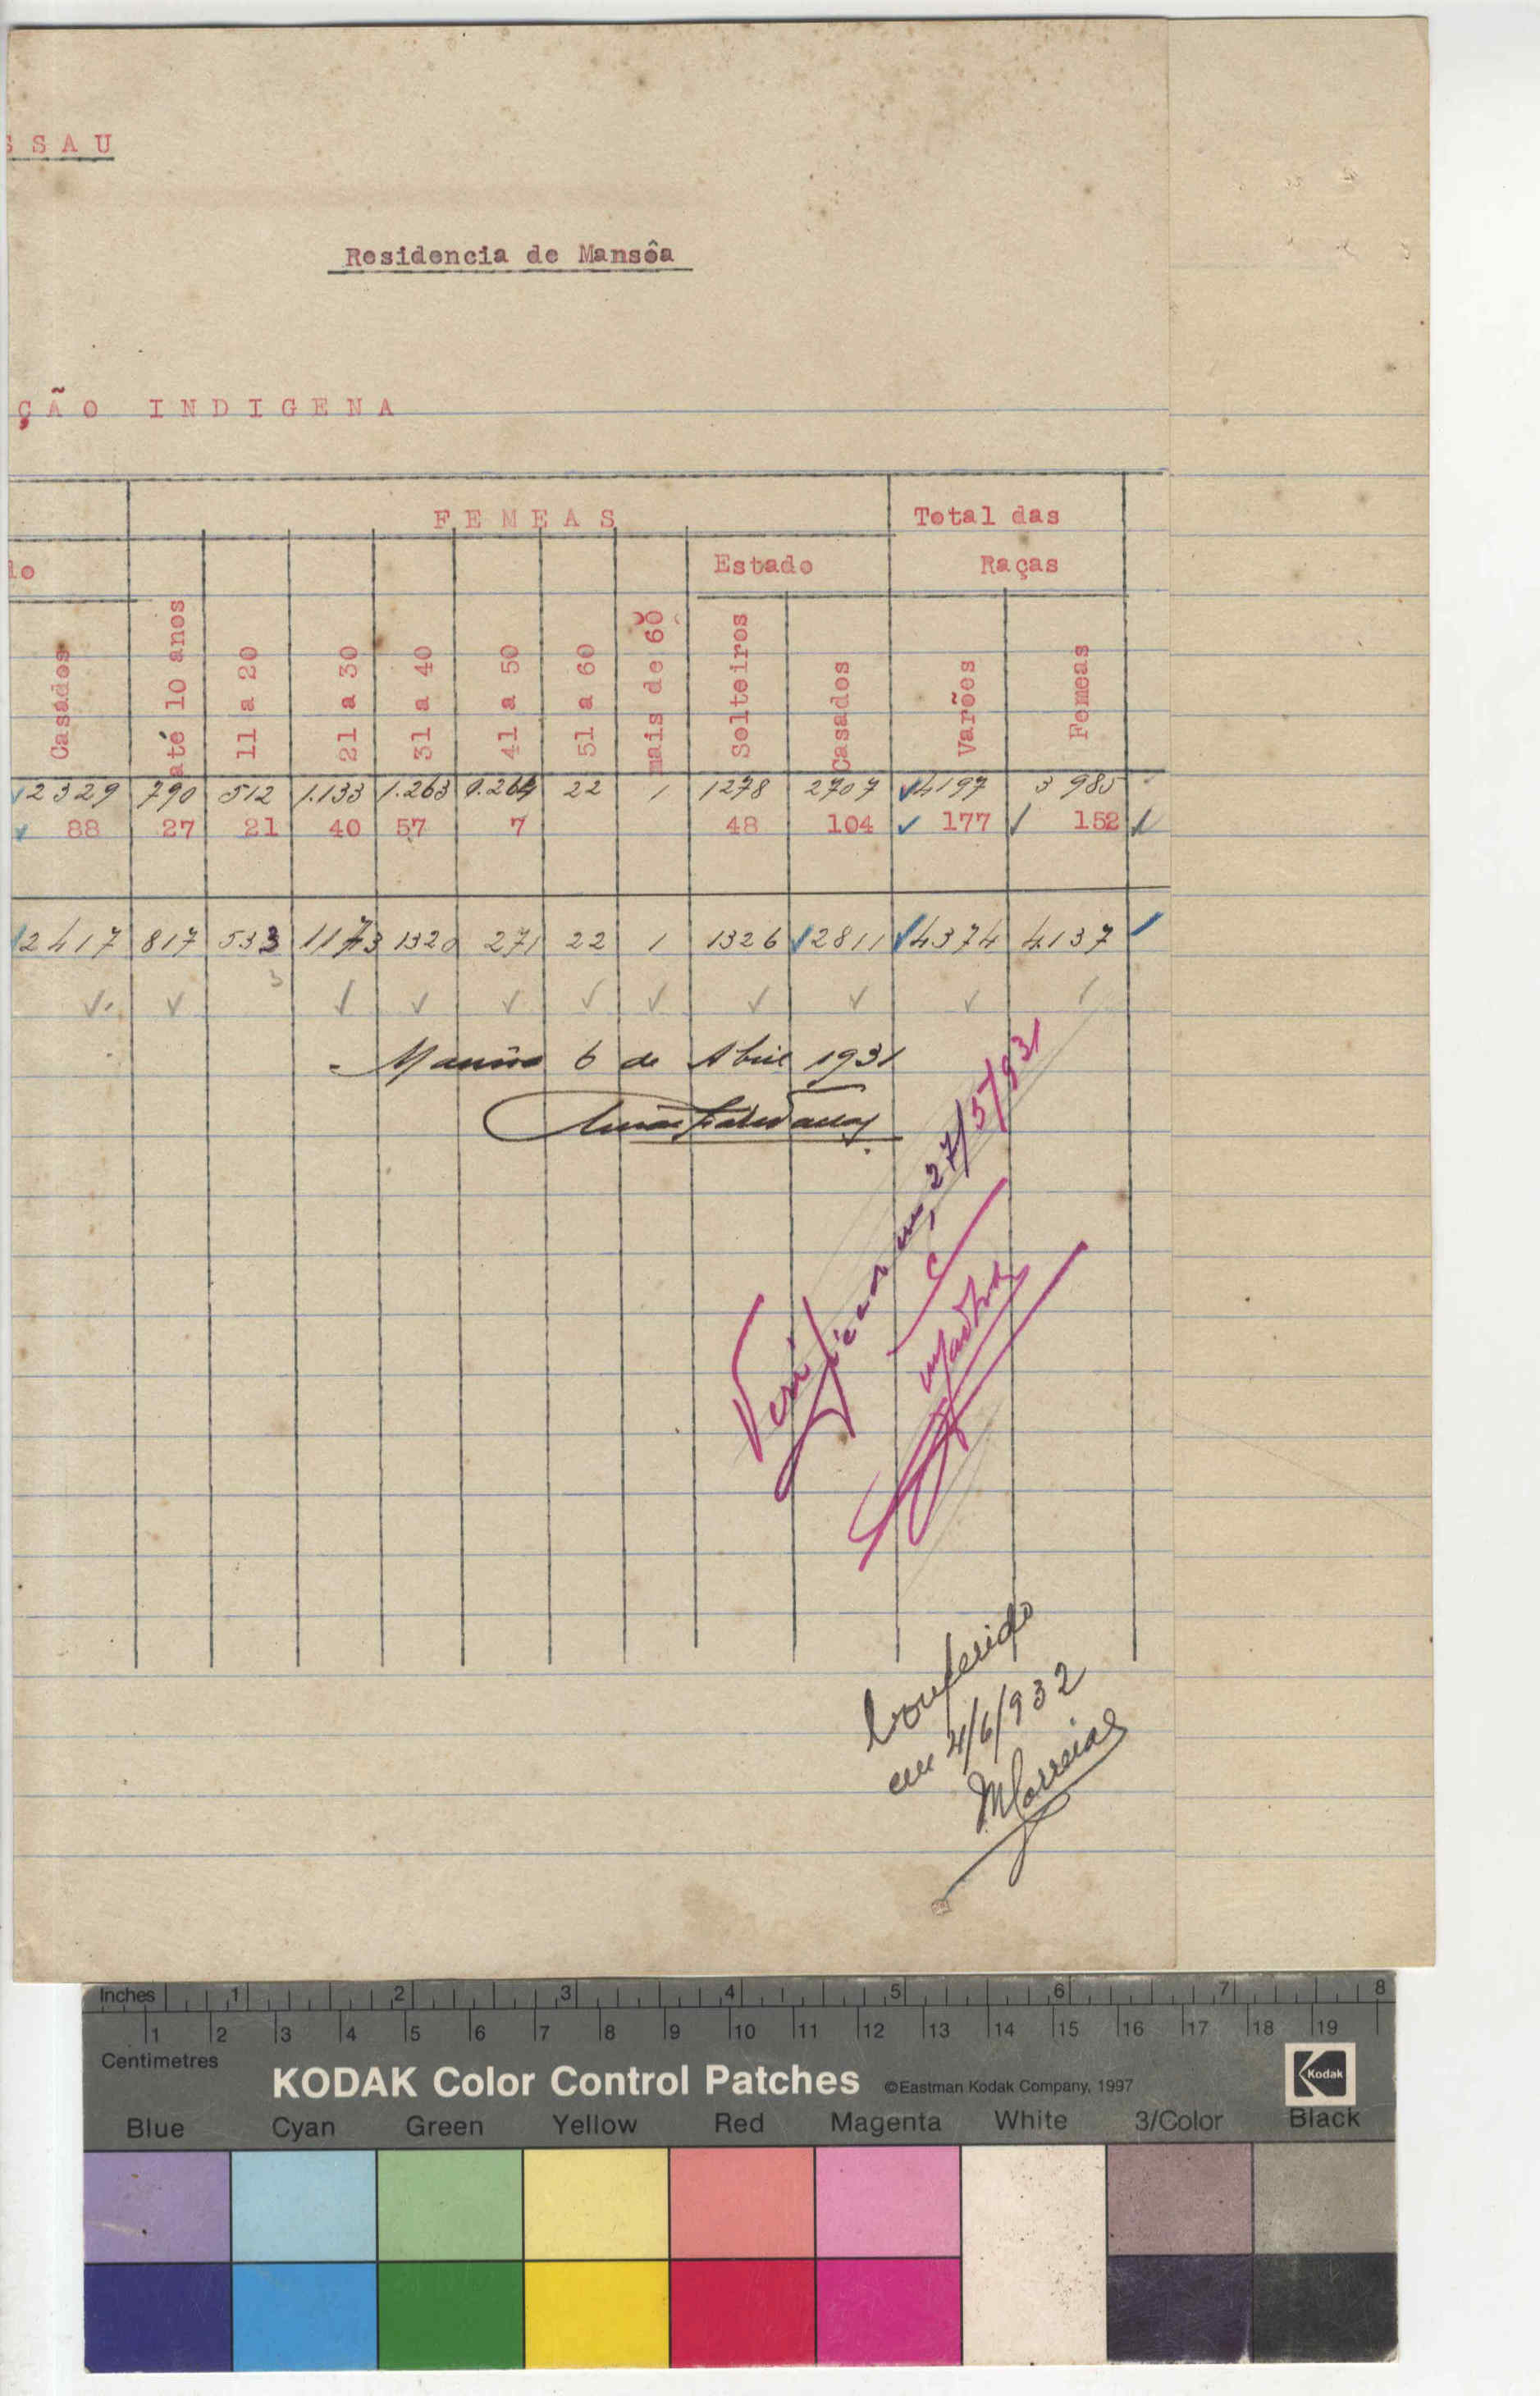 SSAU
Residencia de Mansôa
ÇÃO INDIGENA
FEMEAS Total das
do Estado Raças
Casados até 10 anos 11 a 20 21 a 30 31 a 40 41 a 50 51 a 60 mais de 60 Solteiros Casados Varões Femeas
2329 790 512 1.133 1.263 0.264 22 1 1278 2707 4197 3985
88 27 21 40 57 7 48 104 177 152
2417 817 533 1173 1320 271 22 1 1326 2811 4374 4137
3
Mansôa 6 de Abril 1931
em, 27/5/931
Conferido
em 4/6/932
MCorreia
Inches 1 2 3 4 5 6 7 8
1 2 3 4 5 6 7 8 9 10 11 12 13 14 15 16 17 18 19
Centimetres
KODAK Color Control Patches ©Eastman Kodak Company, 1997 Kodak
Blue Cyan Green Yellow Red Magenta White 3/Color Black